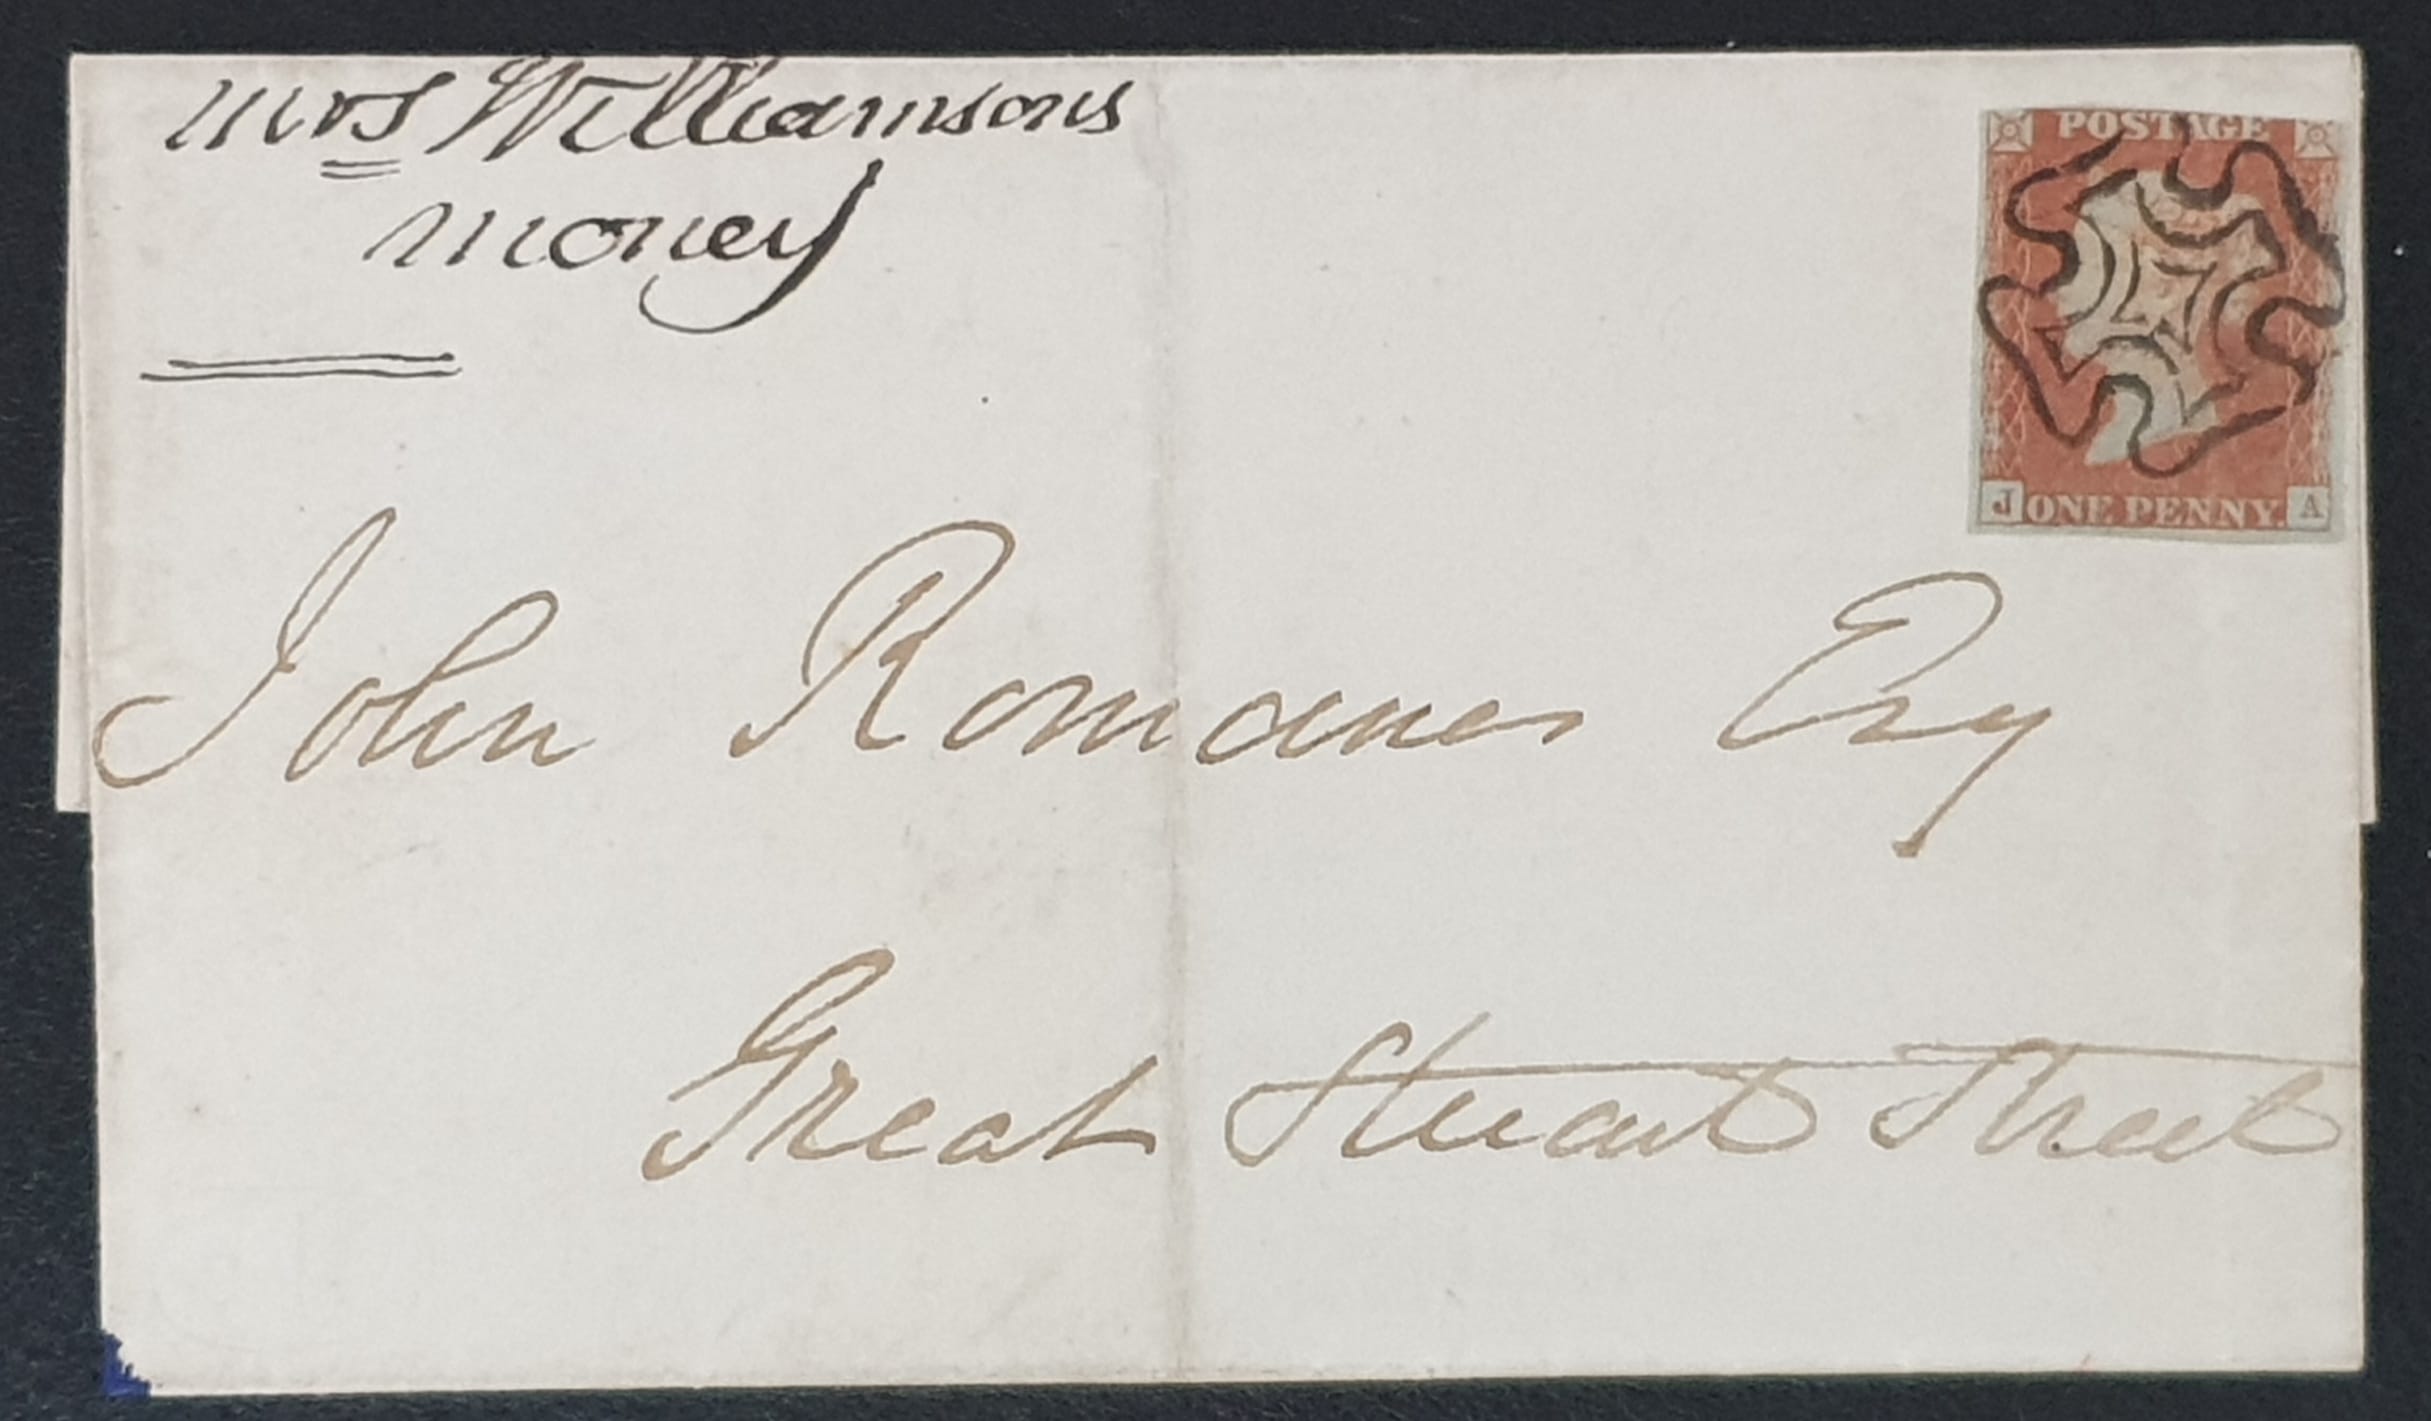 Mrs Williamsons
money
POSTAGE
J ONE PENNY. A
John Romanes Esq
Great Stuart Street